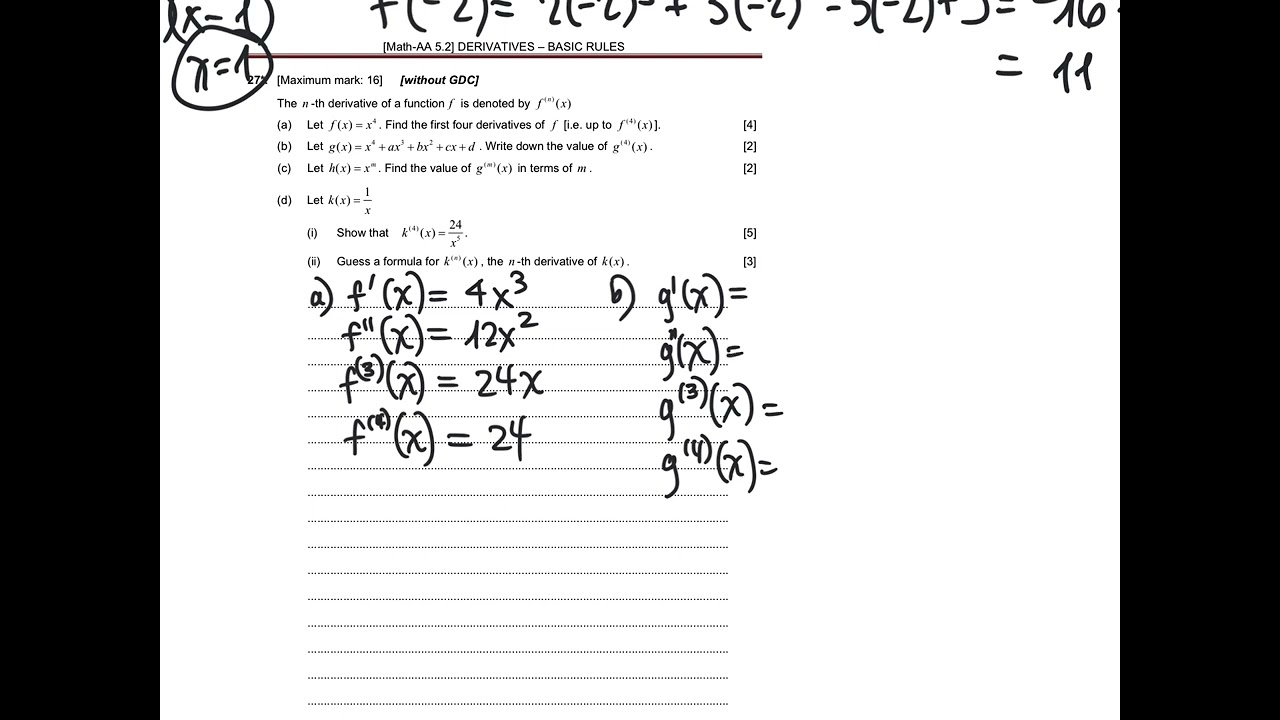 (x-1) f(-2) = 2(-2)³ + 3(-2)² - 5(-2)+3 = -16
[Math-AA 5.2] DERIVATIVES – BASIC RULES
x=1
= 11
27*. [Maximum mark: 16] [without GDC]
The n-th derivative of a function f is denoted by f⁽ⁿ⁾(x)
(a) Let f(x) = x⁴. Find the first four derivatives of f [i.e. up to f⁽⁴⁾(x)]. [4]
(b) Let g(x) = x⁴ + ax³ + bx² + cx + d. Write down the value of g⁽⁴⁾(x). [2]
(c) Let h(x) = xᵐ. Find the value of g⁽ᵐ⁾(x) in terms of m. [2]
(d) Let k(x) = 1/x
(i) Show that k⁽⁴⁾(x) = 24/x⁵. [5]
(ii) Guess a formula for k⁽ⁿ⁾(x), the n-th derivative of k(x). [3]
a) f'(x) = 4x³ b) g'(x) =
f''(x) = 12x² g''(x) =
f⁽³⁾(x) = 24x g⁽³⁾(x) =
f⁽⁴⁾(x) = 24 g⁽⁴⁾(x) =